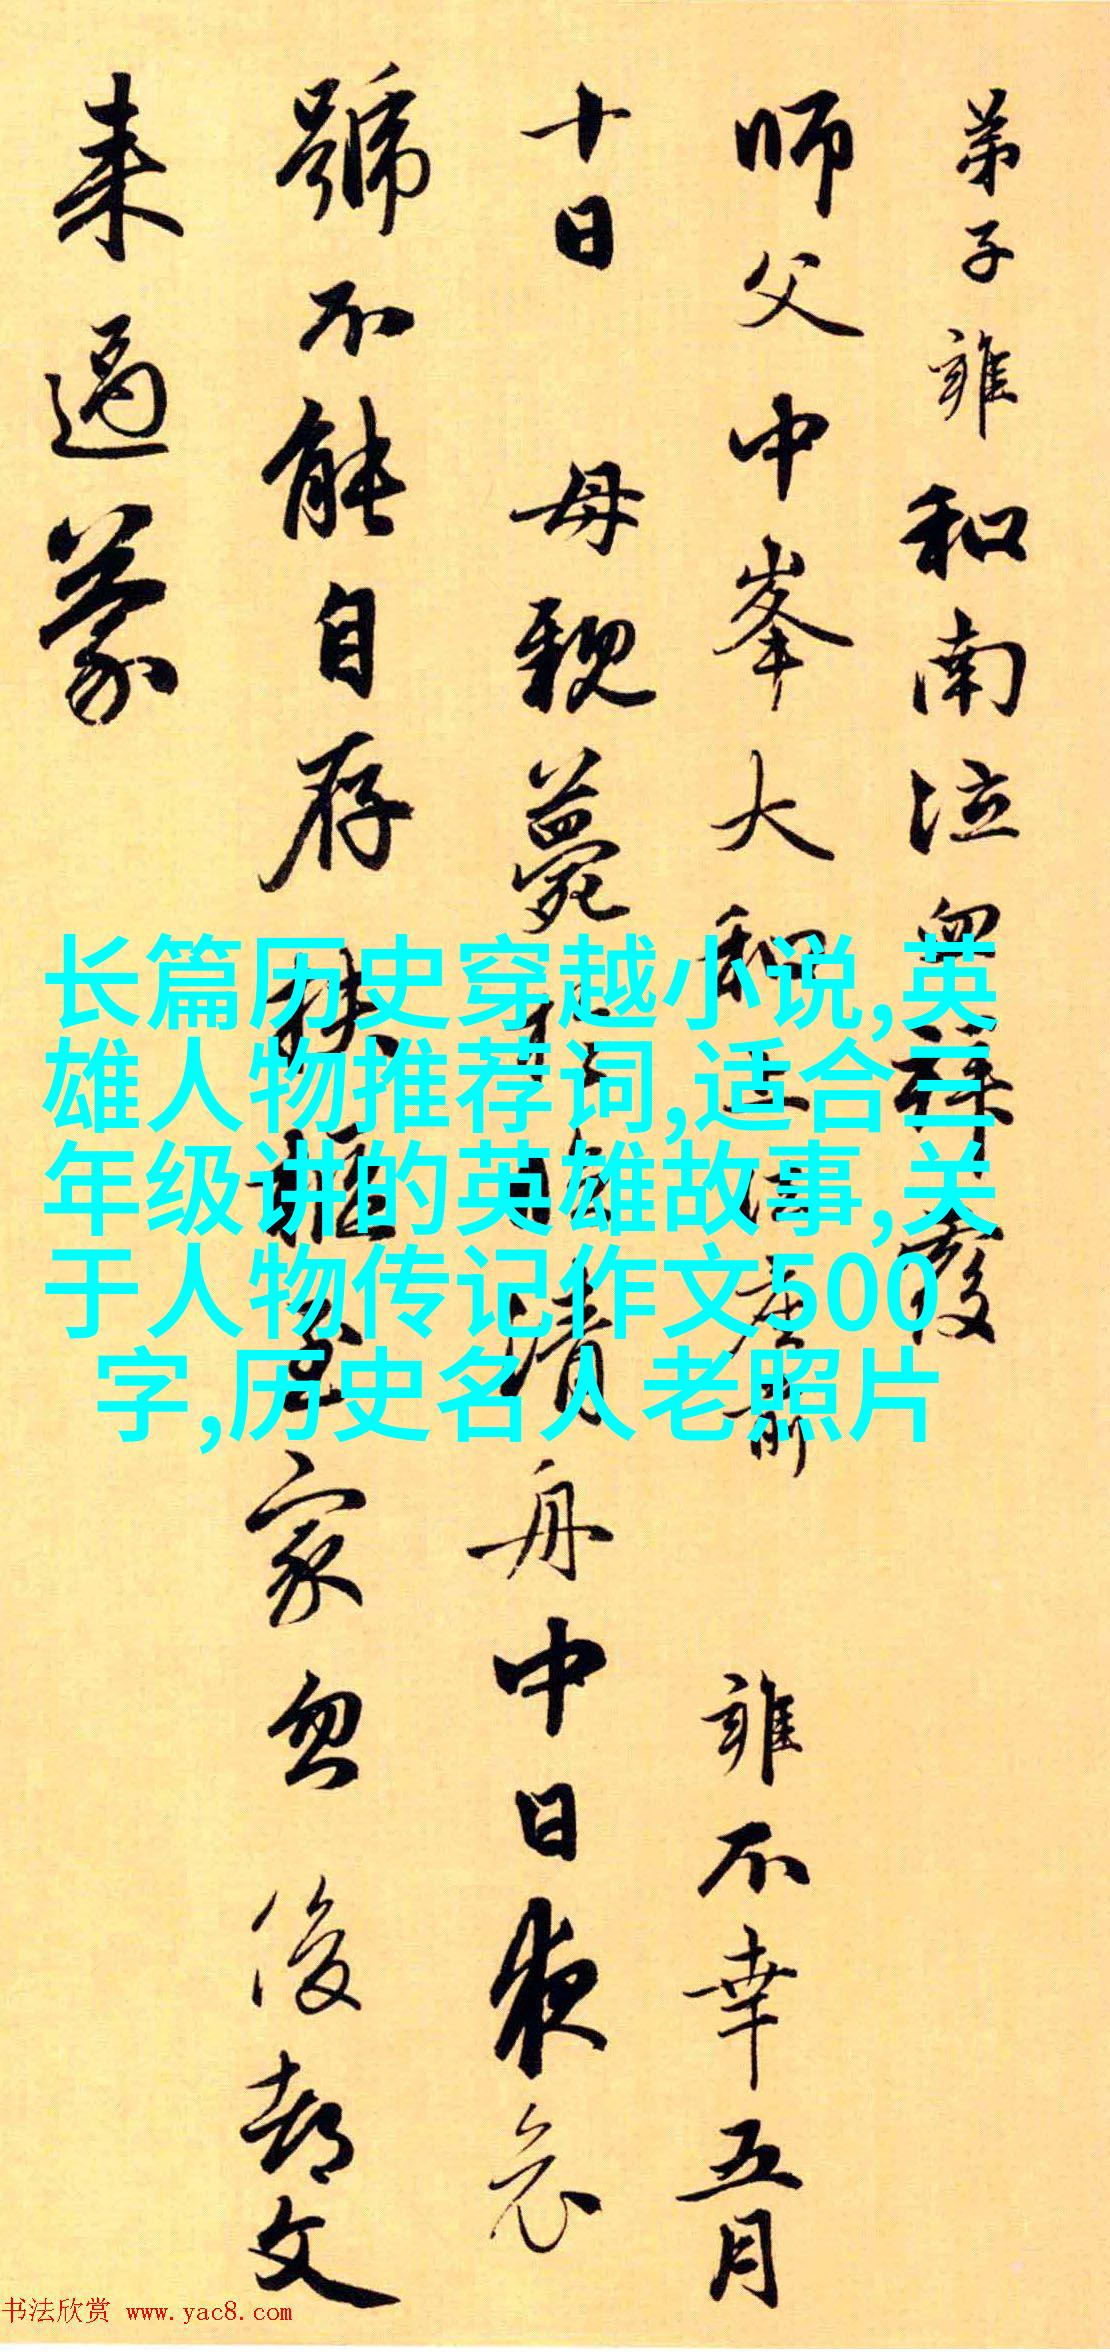 弟子雍和南泣血拜覆
師父中峯大和上法座前 雍不幸五月
十日 母親薨 清舟中日夜哀
號不能自存 扶柩至家忽 後却文
来過蒙
长篇历史穿越小说,英
雄人物推荐词,适合三
年级讲的英雄故事,关
于人物传记作文500
字,历史名人老照片
书法欣赏 www.yac8.com